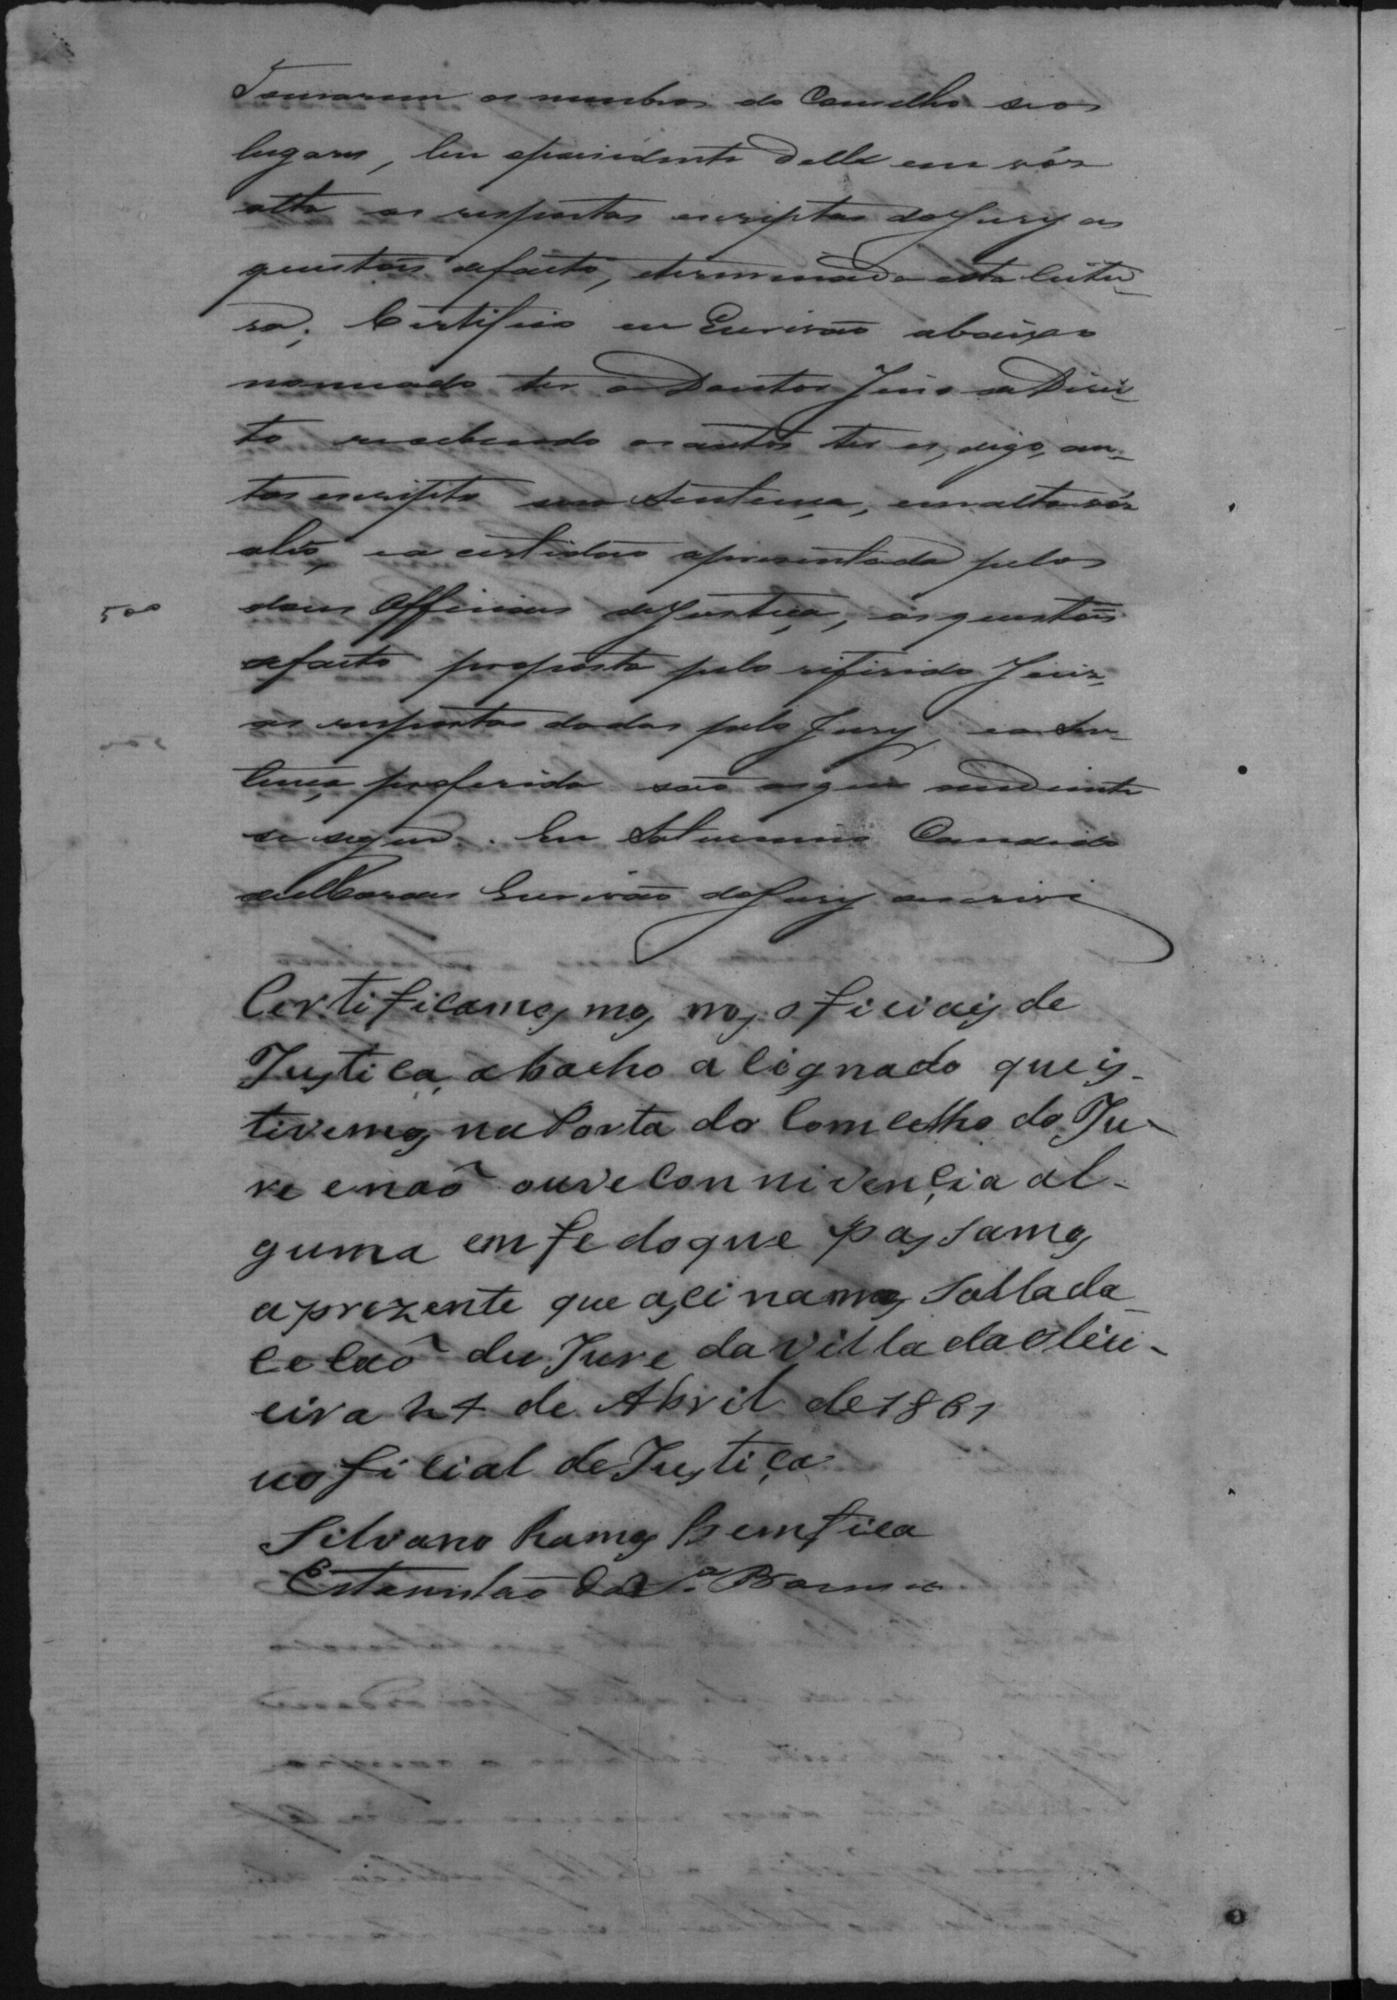 Tomaram os membros do Conselho seos
lugares, leu opresidente delle em vós
alta as respostas escriptas do Jury as
questoẽs defacto, eterminada esta leitu-
ra; Certifico eu Escrivaõ abaixo
nomeado ter o Doutor Juis de Direi-
to recebendo os autos ter es, digo, au-
tos escripto sua Sentença, em alta vós
e a certidaõ apresentada pelos
dous Officiaes deJustiça, as questoẽs
defacto proposta pelo referido Juis,
500
as respostas dadas pelo Jury, ea Sen-
tença proferida saõ as que adiante
se segue. Eu Candido
deMoraes Escrivaõ doJury escrivi
Certificamos nos, oficiais de
Justica, abacho acignado que is-
tivemos na Porta do Comcelho do Ju-
re enaõ ouve connivençia al-
guma em fe doque passamos
aprezente que acinamos Salla da
Cecaõ du Jure da Villa da Oliv-
eira 24 de Abril de 1861
uoficial de Justiça
Silvano Ramos Bemfica
Estanislao da S.ª